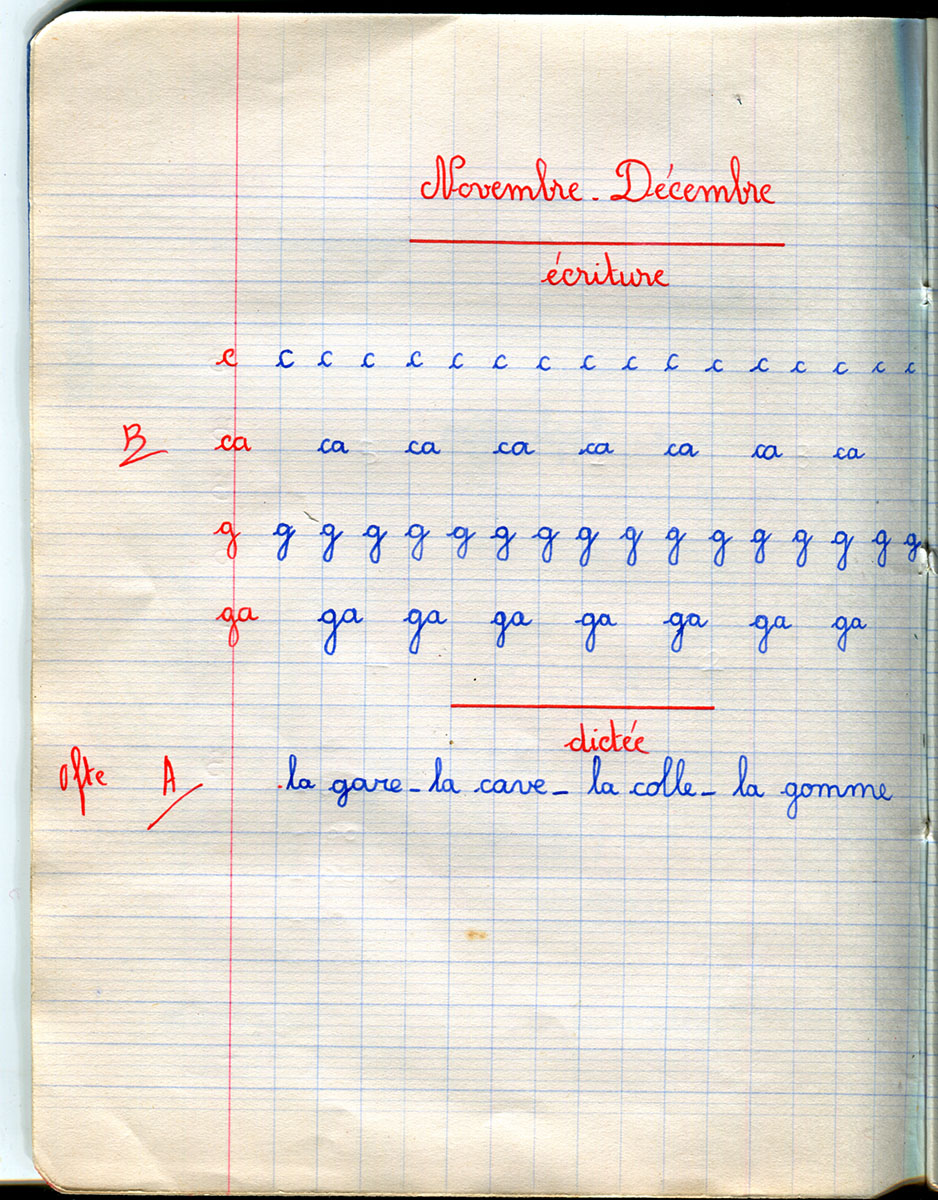 Novembre - Décembre
écriture
c c c c c c c c c c c c c c c c c
B ca ca ca ca ca ca ca ca
g g g g g g g g g g g g g g g g g
ga ga ga ga ga ga ga ga
dictée
0 fte A la gare - la cave - la colle - la gomme